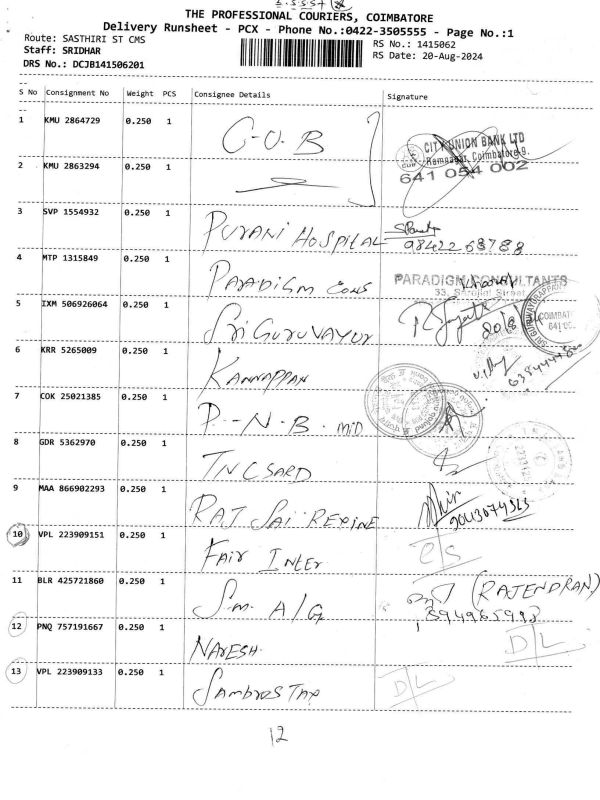 THE PROFESSIONAL COURIERS, COIMBATORE
Delivery Runsheet - PCX - Phone No.:0422-3505555 - Page No.:1
Route: SASTHIRI ST CMS
RS No.: 1415062
Staff: SRIDHAR
RS Date: 20-Aug-2024
DRS No.: DCJB141506201
S No Consignment No Weight PCS Consignee Details Signature
1 KMU 2864729 0.250 1 C-U.B
CITY UNION BANK LTD
Ramnagar, Coimbatore-9.
641 054 002
2 KMU 2863294 0.250 1
3 SVP 1554932 0.250 1 Purani Hospital
9842268788
4 MTP 1315849 0.250 1 Paradigm Cons
PARADIGM CONSULTANTS
33, Sarojini Street
5 IXM 506926064 0.250 1 Sri Guruvayur
20/8
6 KRR 5265009 0.250 1 Kannappan
7 COK 25021385 0.250 1 P-N-B. MID
8 GDR 5362970 0.250 1 TNCSARD
9 MAA 866902293 0.250 1 RAJ SAI REXINE
10 VPL 223909151 0.250 1 Fair Inter
CS
11 BLR 425721860 0.250 1 S.M. A/G
(RAJENDRAN)
12 PNQ 757191667 0.250 1 NARESH.
D/L
13 VPL 223909133 0.250 1 Sambros Tap
D/L
12